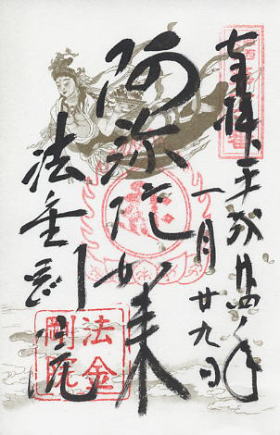 奉拝 平成廿四年
一月廿九日
阿弥陀如来
法金剛院
法金
剛院